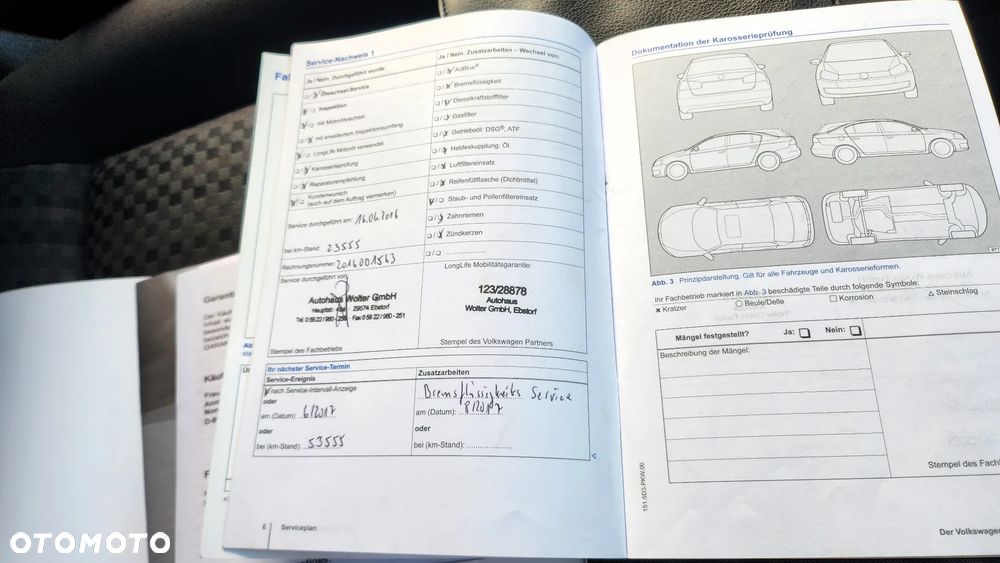 Fal
Service-Nachweis 1
Ja / Nein. Durchgeführt wurde:
Ölwechsel-Service
Inspektion
mit Motorölwechsel
mit erweitertem Inspektionsumfang
LongLife Motoröl verwendet
Karosserieprüfung
Reparaturempfehlung
Kundenwunsch
(auch auf dem Auftrag vermerken)
Service durchgeführt am: 16.06.2016
bei km-Stand: 23555
Rechnungsnummer: 2016001563
Service durchgeführt von:
Autohaus Wolter GmbH
29574 Ebstorf
Stempel des Fachbetriebs
Ja / Nein. Zusatzarbeiten – Wechsel von:
AdBlue®
Bremsflüssigkeit
Dieselkraftstofffilter
Gasfilter
Getriebeöl: DSG®, ATF
Haldexkupplung: Öl
Luftfiltereinsatz
Reifenfüllflasche (Dichtmittel)
Staub- und Pollenfiltereinsatz
Zahnriemen
Zündkerzen
LongLife Mobilitätsgarantie:
123/28878
Autohaus
Wolter GmbH, Ebstorf
Stempel des Volkswagen Partners
Ihr nächster Service-Termin
Service-Ereignis
nach Service-Intervall-Anzeige
oder
am (Datum): 6/2017
oder
bei (km-Stand): 53555
Zusatzarbeiten
Bremsflüssigkeits Service
am (Datum): 8/2017
oder
bei (km-Stand):
6 Serviceplan
Dokumentation der Karosserieprüfung
Abb. 3 Prinzipdarstellung. Gilt für alle Fahrzeuge und Karosserieformen.
Ihr Fachbetrieb markiert in Abb. 3 beschädigte Teile durch folgende Symbole:
x Kratzer ○ Beule/Delle □ Korrosion △ Steinschlag
Mängel festgestellt? Ja: □ Nein: □
Beschreibung der Mängel:
Stempel des Fach
151.5D3.PKW.00
Der Volkswagen
Garanti
OTOMOTO